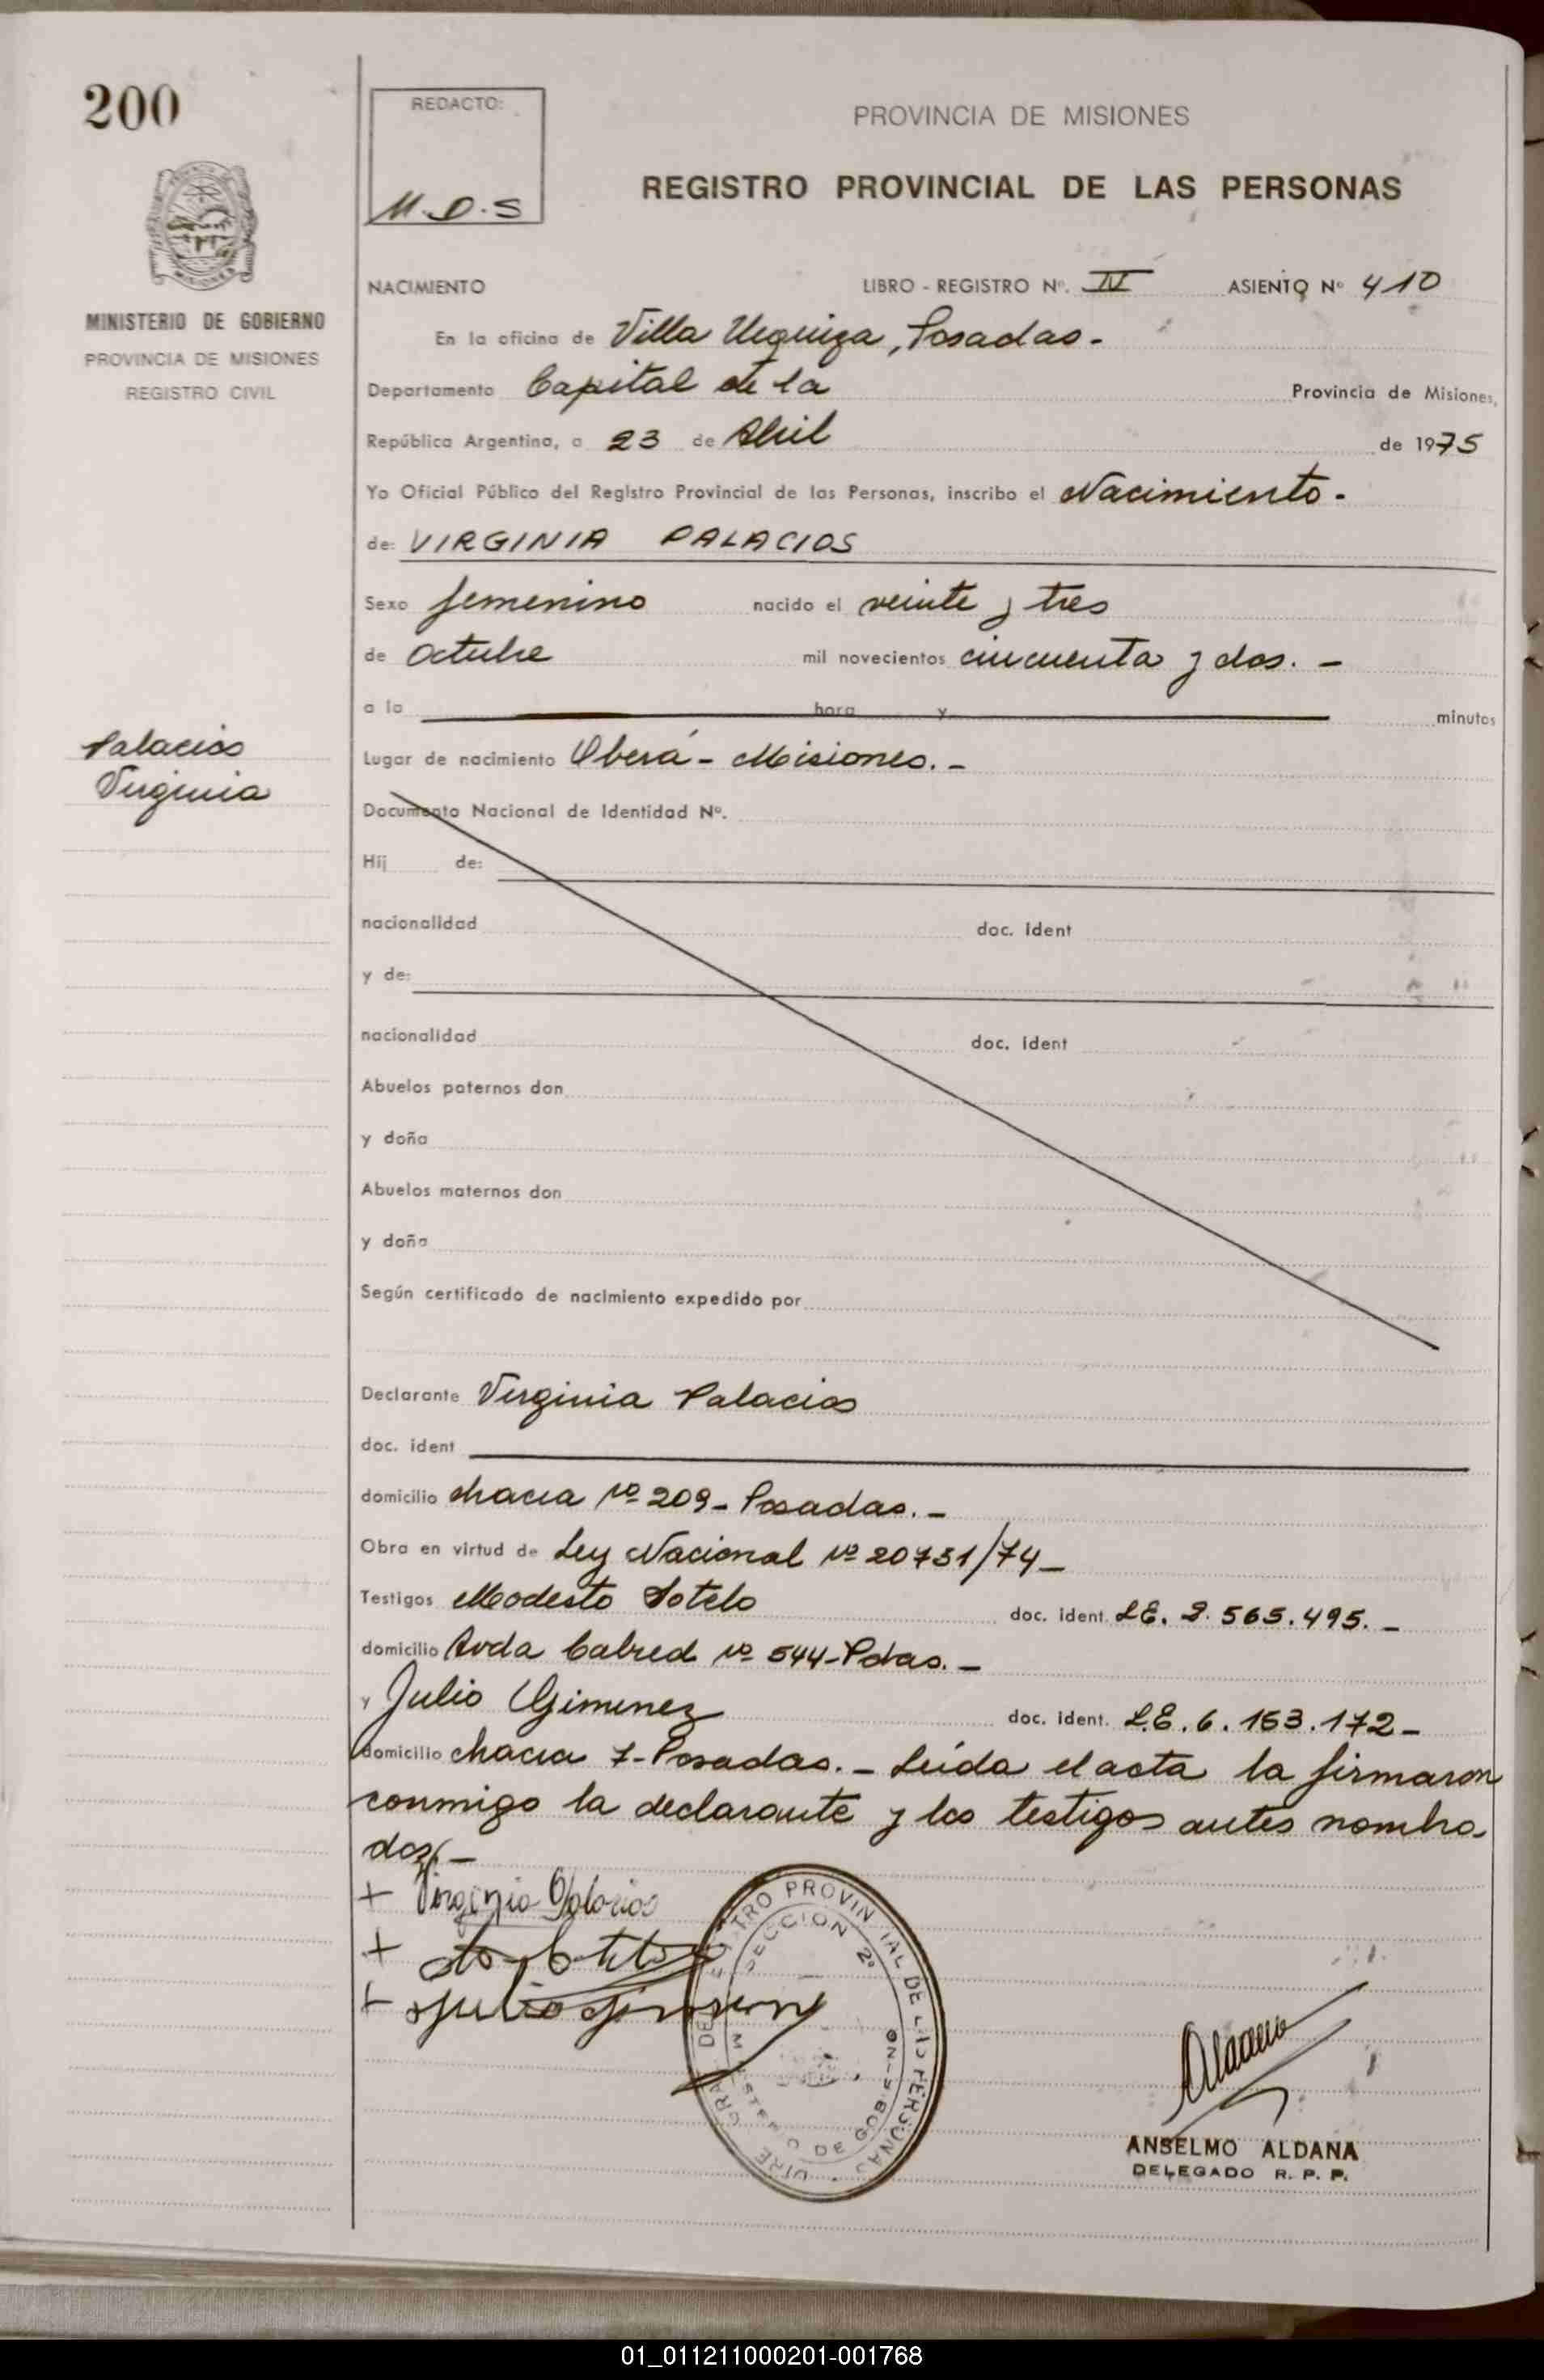 200
REDACTO:
M.D.S
PROVINCIA DE MISIONES
REGISTRO PROVINCIAL DE LAS PERSONAS
MISIONES
MINISTERIO DE GOBIERNO
PROVINCIA DE MISIONES
REGISTRO CIVIL
NACIMIENTO LIBRO - REGISTRO Nº. IV ASIENTO Nº 410
En la oficina de Villa Urquiza, Posadas.-
Departamento Capital de la Provincia de Misiones,
República Argentina, a 23 de Abril de 1975
Yo Oficial Público del Registro Provincial de las Personas, inscribo el Nacimiento.-
de: VIRGINIA PALACIOS
Sexo femenino nacido el veinte y tres
de octubre mil novecientos cincuenta y dos.-
a la hora y minutos
Palacios
Virginia
Lugar de nacimiento Oberá - Misiones.-
Documento Nacional de Identidad Nº.
Hij de:
nacionalidad doc. ident
y de:
nacionalidad doc. ident
Abuelos paternos don
y doña
Abuelos maternos don
y doña
Según certificado de nacimiento expedido por
Declarante Virginia Palacios
doc. ident
domicilio chacra Nº 209- Posadas.-
Obra en virtud de Ley Nacional Nº 20751/74-
Testigos Modesto Sotelo doc. ident. LE. 2.565.495.-
domicilio Avda Cabred Nº 544-Pdas.-
y Julio Gimenez doc. ident. L.E. 6.153.172-
domicilio chacra 7- Posadas.- Leída el acta la firmaron
conmigo la declarante y los testigos antes nombra-
dos.-
+ Virginia Palacios
+
+ Julio Gimenez
DIRE GRAL DEL REGISTRO PROVINCIAL DE LAS PERSONAS
SECCION 2º
MINISTERIO DE GOBIERNO
Aldana
ANSELMO ALDANA
DELEGADO R. P. P.
01_011211000201-001768